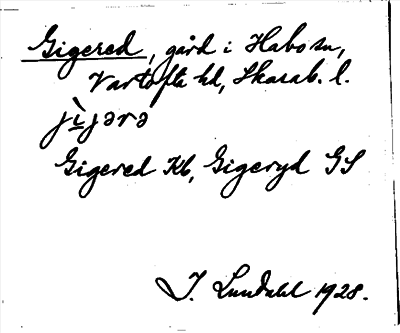 Gigered, gård i Habo sn,
Vartofta hd, Skarab. l.
jìjərə
Gigered Kb, Gigeryd GS
I. Lundahl 1928.